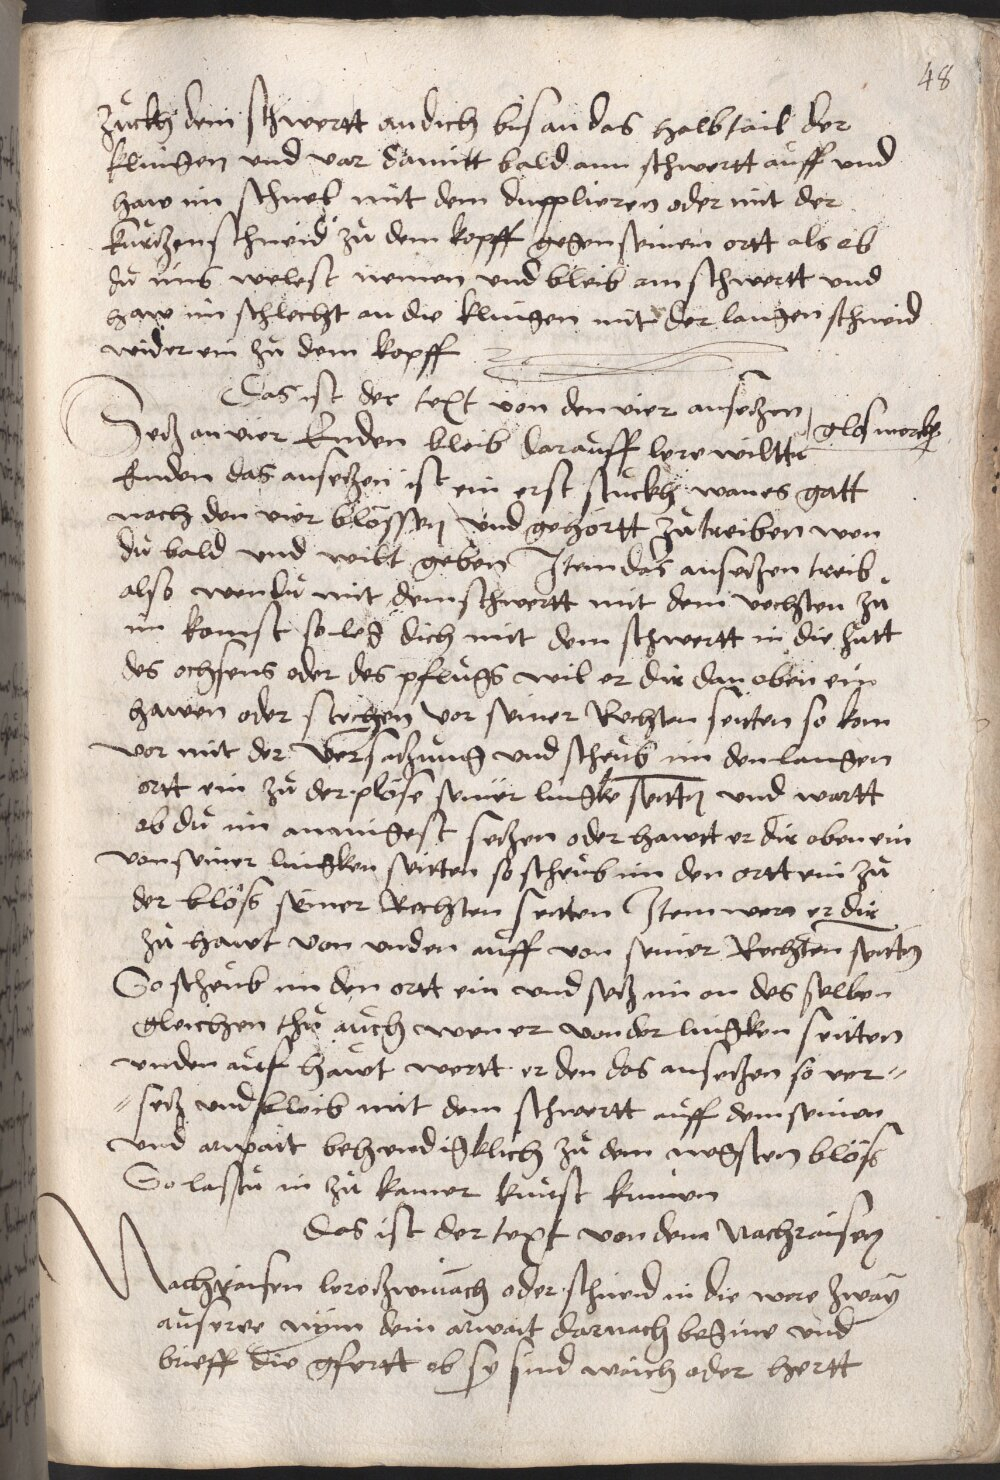 48
zuckh dein schwertt an dich bis an das halbtail der
klingen und var damitt bald am schwertt auff und
haw im schnel mit dem dupplieren oder mit der
kurczen schneid zu dem kopff gegen seinen ortt als ob
du uns welest nemen und bleib am schwertt und
haw im schlecht an die klingen mit der langen schneid
wider ein zu dem kopff
Das ist der text von den vier anseczen
Secz an vier Enden bleib darauff lere wiltu glos merckh
Enden das anseczen ist ein erst stuckh wan es gatt
nach den vier blössen und gehörtt zu treiben wen
du bald und wilt geben Item das anseczen treib
also wen du mit dem schwertt mit dem vechten zu
im komst so leg dich mit dem schwertt in die hutt
des ochsens oder des pflugs wil er dir dan oben ein
hawen oder stechen vor seiner Rechten seitten so kom
vor mit der versaczung und scheub im den langen
ortt ein zu der plöse seiner lingke seitten und wartt
ob du im an mügest seczen oder hawtt er dir oben ein
von seiner lingken seitten so scheub im den ortt ein zu
der blöss seiner Rechten seitten Item wen er dir
zu hawt von unden auff von seiner Rechten seitten
So scheub im den ortt ein und secz im an des selben
gleichen thu auch wen er von der lingken seitten
unden auff hawt wertt er den das anseczen so ver-
-secz und bleib mit dem schwertt auff dem seinen
und arwait behendigklich zu dem negsten blöss
So lastu in zu kainer kunst kumen
Das ist der text von dem Nachraisen
Nachraisen lere zwinach oder schneid in die were zway
ausere nym dein arwait darnach begine und
brieff die gfertt ob sy sind waich oder hertt